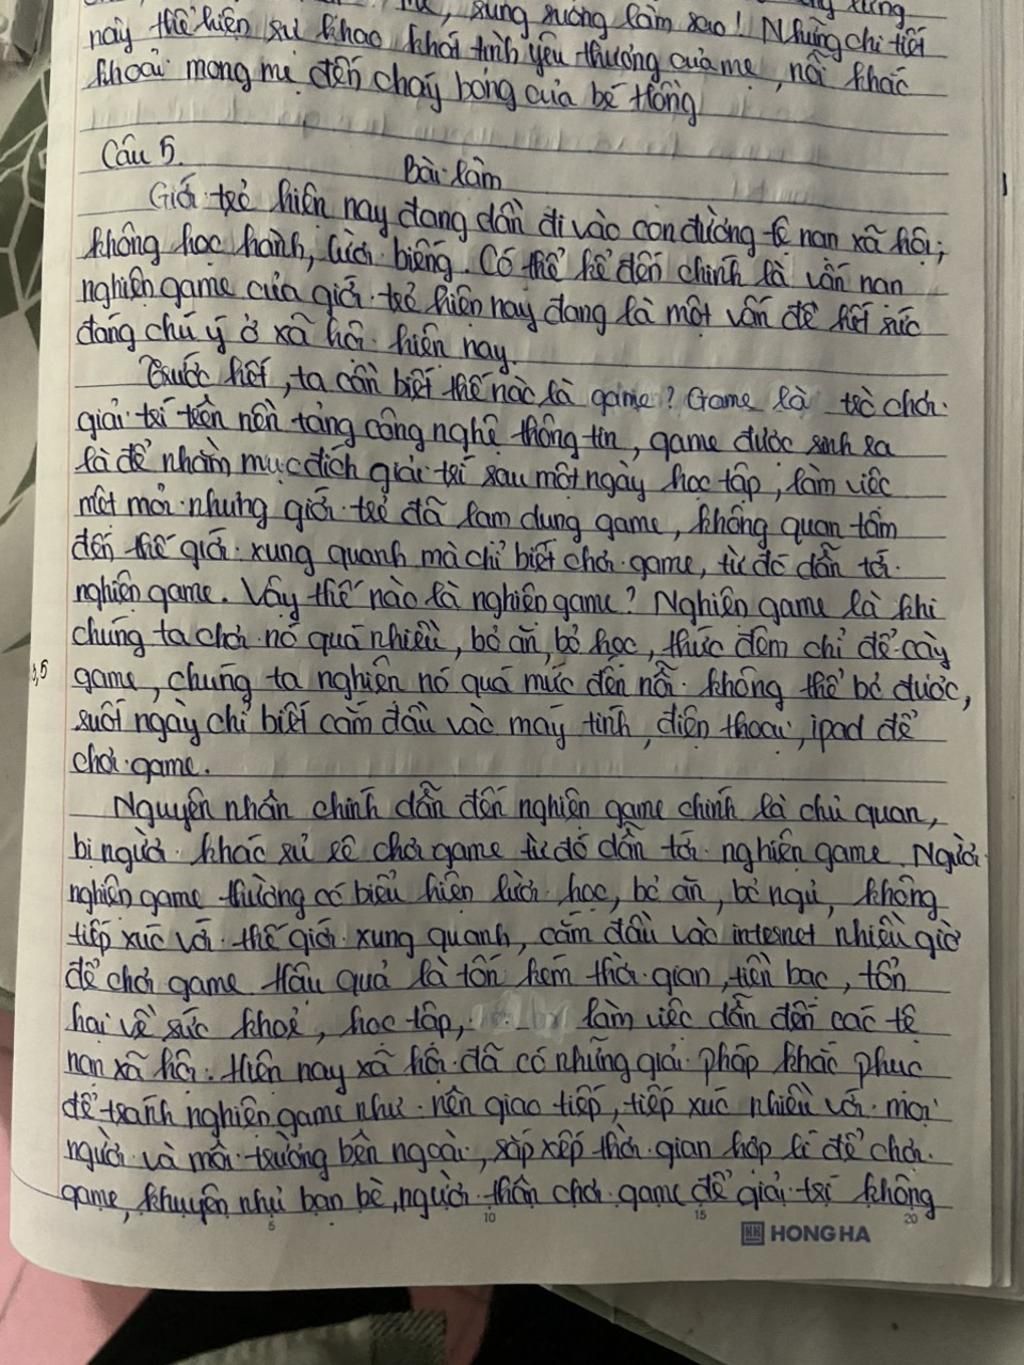 , sung sướng làm sao! Những chi tiết
này thể hiện sự khao khát tình yêu thương của mẹ, nỗi khắc
khoải mong mẹ đến cháy bỏng của bé Hồng
Câu 5.
Bài làm
Giới trẻ hiện nay đang dần đi vào con đường tệ nạn xã hội,
không học hành, lười biếng. Có thể kể đến chính là vấn nạn
nghiện game của giới trẻ hiện nay đang là một vấn đề hết sức
đáng chú ý ở xã hội hiện nay.
Trước hết, ta cần biết thế nào là game? Game là trò chơi
giải trí trên nền tảng công nghệ thông tin, game được sinh ra
là để nhằm mục đích giải trí sau một ngày học tập, làm việc
mệt mỏi nhưng giới trẻ đã lạm dụng game, không quan tâm
đến thế giới xung quanh mà chỉ biết chơi game, từ đó dẫn tới
nghiện game. Vậy thế nào là nghiện game? Nghiện game là khi
chúng ta chơi nó quá nhiều, bỏ ăn, bỏ học, thức đêm chỉ để cày
game, chúng ta nghiện nó quá mức đến nỗi không thể bỏ được,
suốt ngày chỉ biết cắm đầu vào máy tính, điện thoại, ipad để
chơi game.
Nguyên nhân chính dẫn đến nghiện game chính là chủ quan,
bị người khác rủ rê chơi game từ đó dẫn tới nghiện game. Người
nghiện game thường có biểu hiện lười học, bỏ ăn, bỏ ngủ, không
tiếp xúc với thế giới xung quanh, cắm đầu vào internet nhiều giờ
để chơi game. Hậu quả là tốn kém thời gian, tiền bạc, tổn
hại về sức khoẻ, học tập, làm việc dẫn đến các tệ
nạn xã hội. Hiện nay xã hội đã có những giải pháp khắc phục
để tránh nghiện game như nên giao tiếp, tiếp xúc nhiều với mọi
người và môi trường bên ngoài, sắp xếp thời gian hợp lí để chơi
game, khuyên nhủ bạn bè, người thân chơi game để giải trí không
5 10 15 20
HONG HA